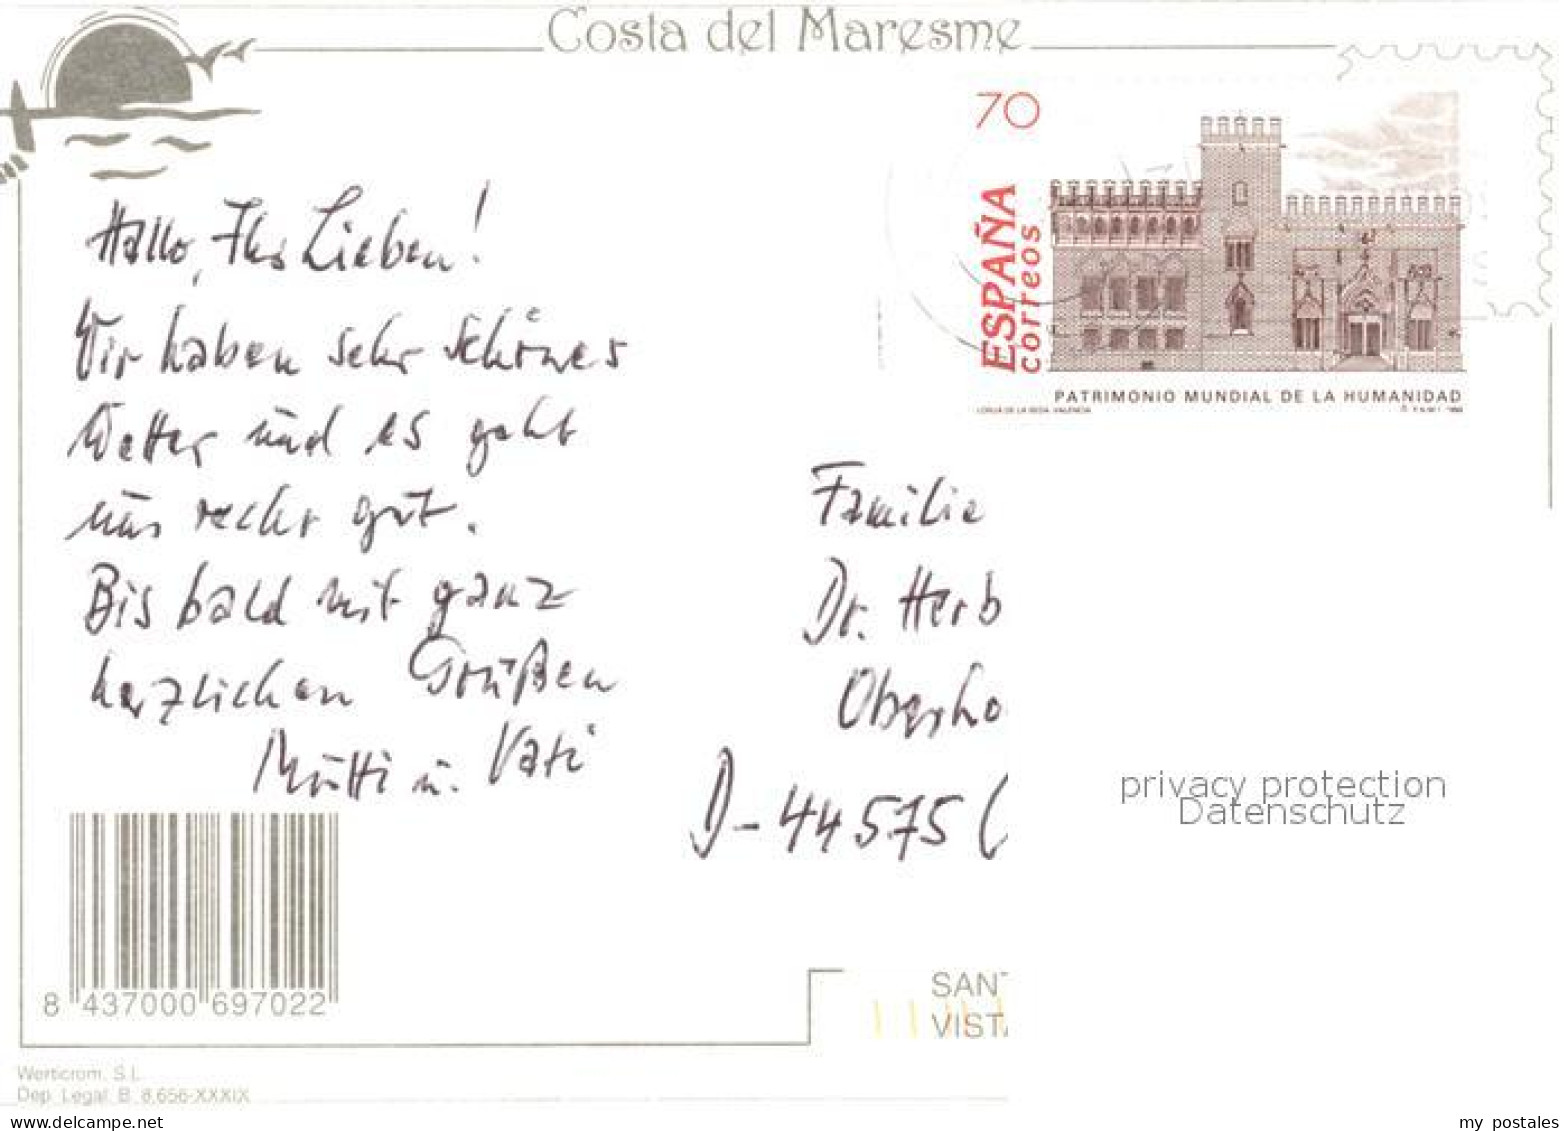 Costa del Maresme
70
ESPAÑA
correos
PATRIMONIO MUNDIAL DE LA HUMANIDAD
LONJA DE LA SEDA. VALENCIA
Hallo, Ihr Lieben!
Wir haben sehr schönes
Wetter und es geht
uns recht gut.
Bis bald mit ganz
herzlichen Grüßen
Mutti u. Vati
Familie
Dr. Herb
Oberho
D-44575 (
privacy protection
Datenschutz
8 437000 697022
SANT
VISTA
Werticrom, S.L.
Dep. Legal B. 8.656-XXXIX
www.delcampe.net
my postales